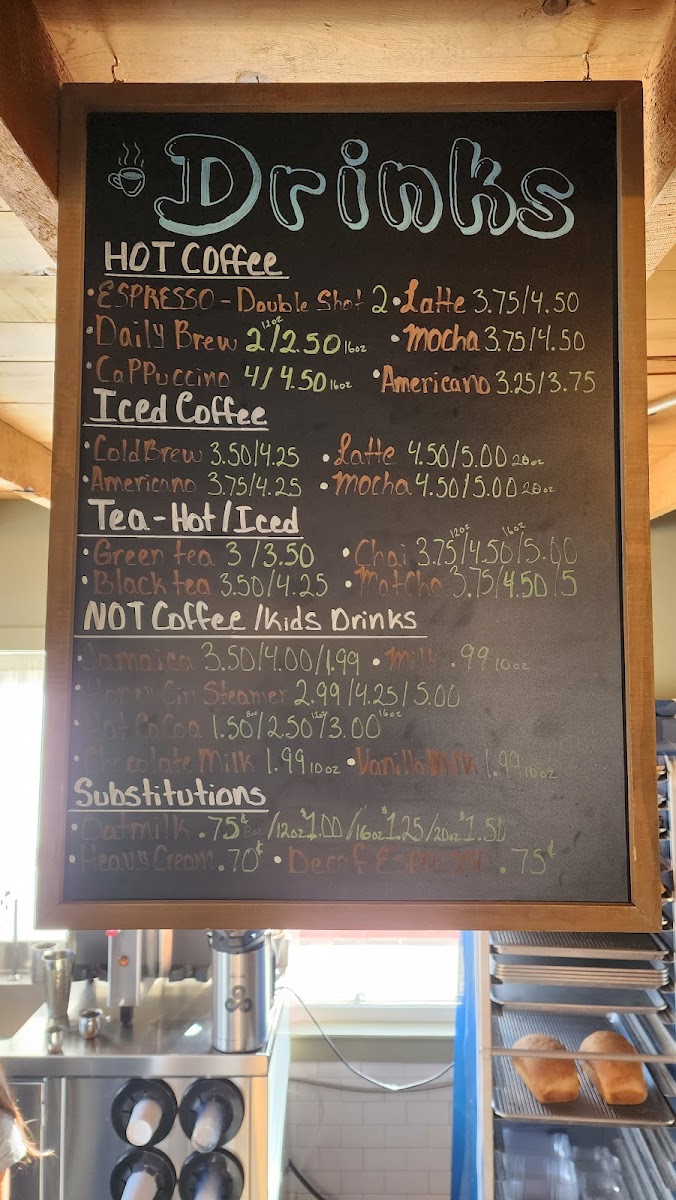 Drinks
HOT Coffee
•ESPRESSO - Double Shot 2 •Latte 3.75/4.50
•Daily Brew 12oz 2/2.50 16oz •Mocha 3.75/4.50
•Cappuccino 4/4.50 16oz •Americano 3.25/3.75
Iced Coffee
•Cold Brew 3.50/4.25 •Latte 4.50/5.00 20oz
•Americano 3.75/4.25 •Mocha 4.50/5.00 20oz
Tea-Hot/Iced
•Green tea 3/3.50 •Chai 3.75/12oz 4.50/16oz 5.00
•Black tea 3.50/4.25 •Matcha 3.75/4.50/5
NOT Coffee/Kids Drinks
•Jamaica 3.50/4.00/1.99 •Milk .99 10oz
•Honey Cin Steamer 2.99/4.25/5.00
•Hot Cocoa 1.50 8oz/2.50 12oz/3.00 16oz
•Chocolate Milk 1.99 10oz •Vanilla Milk 1.99 10oz
Substitutions
•Oatmilk .75¢ 8oz/12oz $1.00/16oz $1.25/20oz $1.50
•Heavy Cream .70¢ •Decaf ESPRESSO .75¢